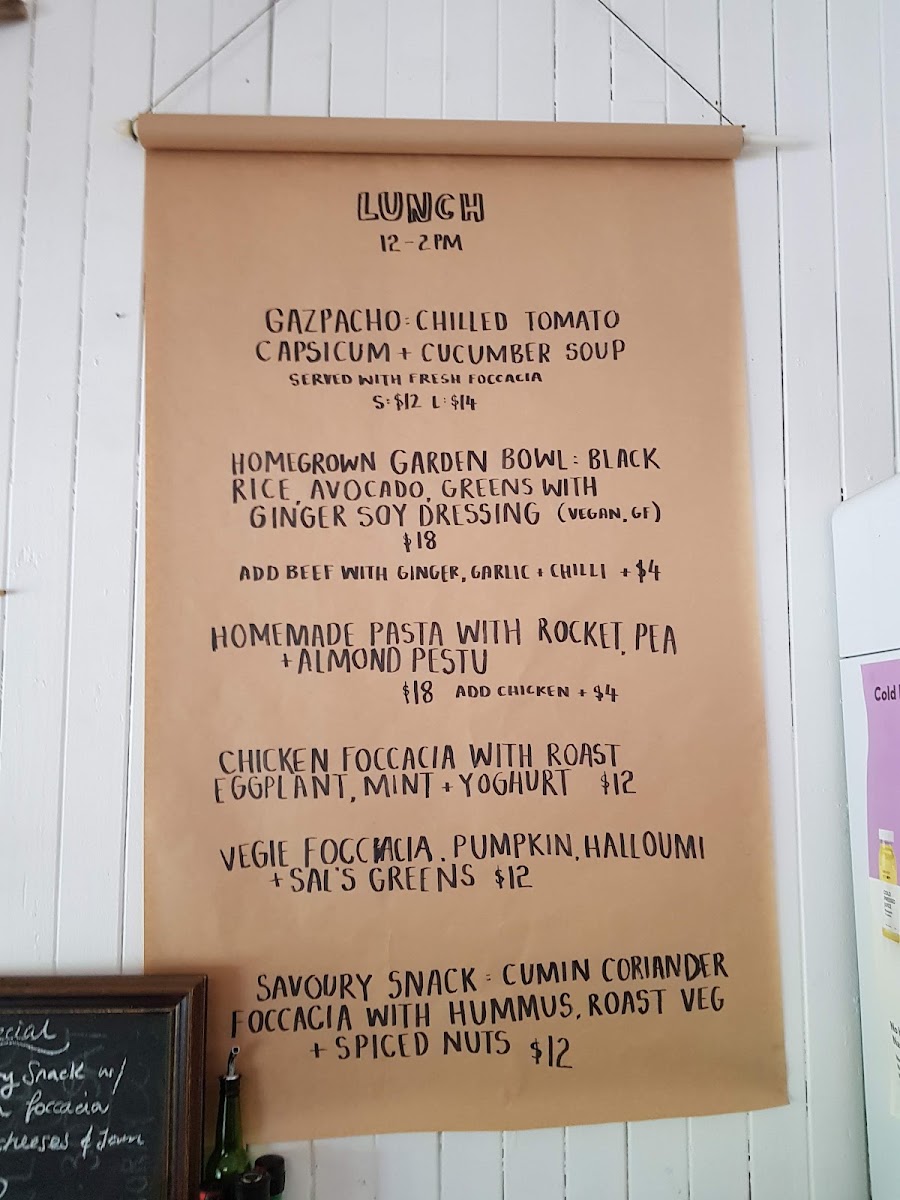 LUNCH
12-2PM
GAZPACHO: CHILLED TOMATO
CAPSICUM + CUCUMBER SOUP
SERVED WITH FRESH FOCCACIA
S: $12 L: $14
HOMEGROWN GARDEN BOWL: BLACK
RICE, AVOCADO, GREENS WITH
GINGER SOY DRESSING (VEGAN, GF)
$18
ADD BEEF WITH GINGER, GARLIC + CHILLI + $4
HOMEMADE PASTA WITH ROCKET, PEA
+ ALMOND PESTU
$18 ADD CHICKEN + $4
CHICKEN FOCCACIA WITH ROAST
EGGPLANT, MINT + YOGHURT $12
VEGIE FOCCIACIA. PUMPKIN, HALLOUMI
+ SAL'S GREENS $12
SAVOURY SNACK: CUMIN CORIANDER
FOCCACIA WITH HUMMUS, ROAST VEG
+ SPICED NUTS $12
ecial
y Snack w/
foccacia
cheeses &
Cold